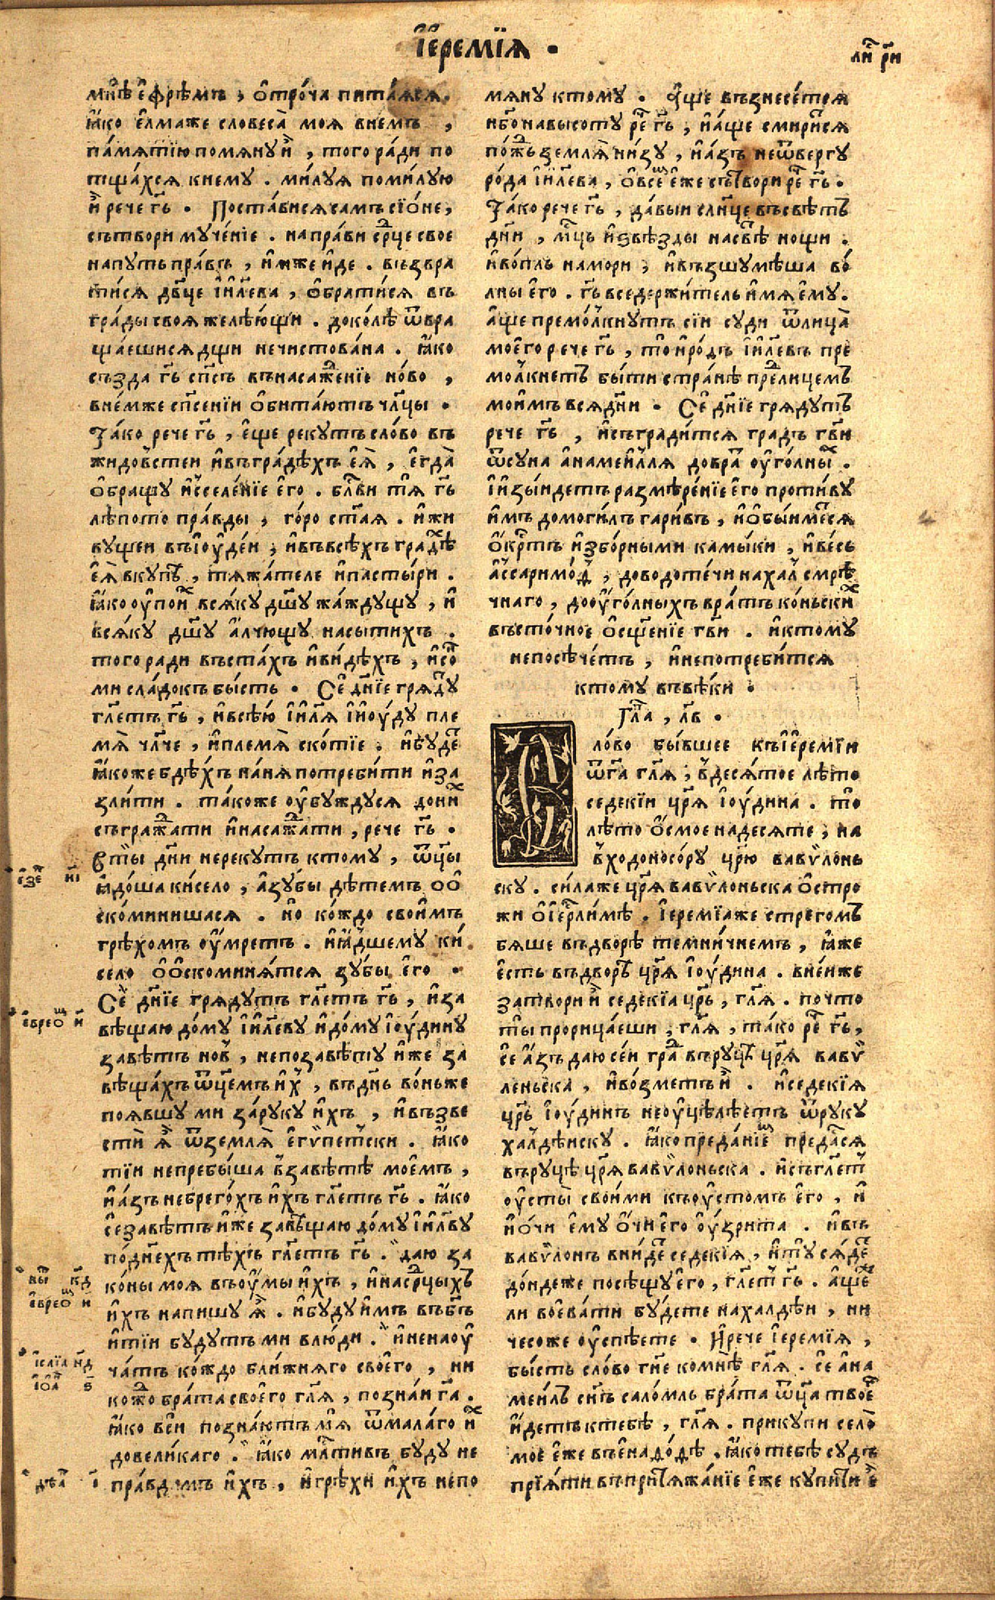 І҆еремі́ѧ .
ли́ст рн҃
мнѣ є҆фре́мъ , ѻ҆троча̀ пита́ѧсѧ .
ꙗ҆́ко є҆лма́же словеса̀ моѧ̀ внє́мъ ,
па́мѧтїю помѧнꙋ̀ и҆̀ , того̀ ра́ди по
тща́хсѧ к немꙋ̀ . ми́лꙋѧ поми́лꙋю
и҆̀ рече гь҃ . Поста́висѧ сам сїо́не ,
сътвори мꙋче́нїе . напра́ви ср҃це свое
на пꙋть пра́въ , и҆м же и҆́де . възвра
ти́сѧ дв҃це і҆и҃лева , ѻ҆брати́сѧ въ
гра́ды своѧ желѣ́ющи . доко́лѣ ѿвра
ща́ешисѧ дщи нечистова́на . ꙗ҆́ко
създа гь҃ сп҃съ в насажде́нїе но́во ,
в не́мже сп҃се́нїи ѻ҆бита́ютъ чл҃цы .
Та́ко рече гь҃ , є҆ще рекꙋ́тъ сло́во въ
жидо́встеи и҆ въ гра́дѣхъ є҆ѧ̀ , є҆гда̀
ѻ҆бращꙋ̀ и҆сселе́нїе є҆го . бл҃ви тѧ гь҃
лѣ́пото пра́вды , го́ро ст҃аѧ . и҆ жи
вꙋщеи въ і҆ꙋде́и , и҆ въ всѣхъ гра́дѣх
є҆ѧ̀ вкꙋпѣ , тѧжа́теле и҆ па́стыри .
ꙗ҆́ко ᲂу҆пои́х всѧ́кꙋ дш҃ꙋ жа́ждꙋщꙋ , и҆
всѧ́кꙋ дш҃ꙋ а҆́лчющꙋ насы́тихъ .
того ра́ди въста́хъ и҆ ви́дѣхъ , и҆ со́н
ми сла́докъ бысть . Се́ дн҃їе грѧдꙋ
гл҃етъ гь҃ , и҆ всѣ́ю і҆и҃лѧ и҆ і҆ꙋ́дꙋ пле
мѧ̀ чл҃че , и҆ племѧ̀ ско́тїе . и҆ бꙋ́дет
ꙗ҆́коже бдѣ́хъ на нѧ потреби́ти и҆ за
зли́ти . та́коже ᲂу҆бꙋждꙋсѧ до ни́х
съгражда́ти и҆ насажда́ти , рече гь҃ .
В ты́ дн҃и не рекꙋтъ ктомꙋ̀ , ѿц҃ы
ꙗ҆до́ша ки́село , а҆ зꙋ́бы дѣ́темъ ѻ҆ѻ҆
ско́минишасѧ . но ко́ждо свои́мъ
грѣхо́мъ ᲂу҆́мретъ . и҆ ꙗ҆́дшемꙋ ки́
село ѻ҆ѻ҆ско́минѧтсѧ зꙋ́бы є҆го .
Се́ дн҃їе грѧдꙋтъ гл҃етъ гь҃ , и҆ за
вѣща́ю до́мꙋ і҆и҃левꙋ и҆ до́мꙋ і҆ꙋдинꙋ
завѣ́тъ но́в , не по завѣ́тꙋ и҆́же за
вѣща́хъ ѿц҃емъ и҆́х , въ дн҃ь во́ньже
поѧ́вшꙋ ми за́ рꙋкꙋ и҆́хъ , и҆ възве
сти́ ѧ҆̀ ѿ землѧ̀ є҆гѵпетски . ꙗ҆́ко
ти́и не пребы́ша в завѣ́тѣ мое́мъ ,
и҆ а҆́зъ небрего́хъ и҆́хъ гл҃етъ гь҃ . ꙗ҆́ко
се́ завѣ́тъ и҆́же завѣща́ю до́мꙋ і҆и҃лвꙋ
по́ днехъ тѣхъ гл҃етъ гь҃ . даю́ за
ко́ны моѧ̀ въ ᲂу҆мы̀ и҆́хъ , и҆ на ср҃цыхъ
и҆́хъ напишꙋ̀ ѧ҆̀ . и҆ бꙋ́дꙋ и҆́мъ въ бг҃ъ
и҆ ти́и бꙋ́дꙋтъ ми в лю́ди . и҆ не наꙋ
ча́тъ ко́ждо бли́жнѧго своего̀ , ни
кождо бра́та своего̀ гл҃ѧ , позна́и га҃ .
ꙗ҆́ко вси́ позна́ютъ мѧ̀ ѿ ма́лаго и҆́х
до вели́каго . ꙗ҆́ко мл҃стивъ бꙋ́дꙋ не
пра́вдамъ и҆́хъ , и҆ грѣхи и҆́хъ не по
є҆зе́к ні
є҆вре́ѡм и҃
вы́ш кд
є҆вре́ѡм и
і҆са́їа нд
і҆оа́н ѕ҃
дѣѧ́ і҃
мѧнꙋ̀ ктомꙋ̀ . А҆́ще възнесе́тсѧ
нб҃о на высотꙋ̀ ре́че гь҃ , и҆ а҆́ще смири́тсѧ
по́жъ землѧ̀ ни́зꙋ , и҆ а҆́зъ не ѿве́ргꙋ
ро́да і҆и҃лева , ѻ҆ все́м є҆́же сътвори ре́че гь҃ .
Та́ко рече гь҃ , да́выи слн҃це въ свѣ́тъ
дн҃и , мц҃ь и҆ звѣ́зды на свѣ́тъ нощи .
и҆ во́пль на мори , и҆ възшꙋмѣ́ша во́
лны є҆го . гь҃ вседержи́тель и҆́мѧ є҆мꙋ̀ .
А҆́ще премо́лкнꙋтъ сїи сꙋди ѿ лица̀
моего̀ рече гь҃ , то и҆ ро́дъ і҆и҃левъ пре
мо́лкнетъ бы́ти стра́нѣ пред лице́мъ
мои́мъ всѧ̀ дн҃и . Се́ дн҃їе грѧдꙋтъ
рече гь҃ , и҆ съгради́тсѧ гра́дъ гв҃и
ѿ сꙋна а҆намеи́лѧ до вра́т ᲂу҆го́лны .
И҆ зы́идетъ размѣре́нїе є҆го проти́вꙋ
и҆́мъ до моги́лъ гари́въ , и҆ ѻ҆бы́имесѧ
ѻ҆́крстъ и҆збо́рными ка́мыки , и҆ ве́сь
а҆ссаримо́д , до водоте́чи нахал смрѣ
чнаго , до ᲂу҆го́лныхъ вра́тъ ко́ньских
въсто́чное ѻ҆сщ҃е́нїе гв҃и . и҆ ктомꙋ
не посѣче́тъ , и҆ не потреби́тсѧ
ктомꙋ в вѣ́ки .
Гла́ , лв .
Сло́во бы́вшее къ і҆ереміи
ѿ га҃ гл҃ѧ , в десѧ́тое лѣ́то
седекі́и цр҃ѧ і҆ꙋ́дина . то́
лѣ́то ѻ҆смоена́десѧте , на
вхо́доносо́рꙋ цр҃ю вавѵлонь
скꙋ . си́лаже цр҃ѧ вавѵлоньска ѻ҆стро
жи ѻ҆ і҆ерл҃имѣ . і҆ереміѧже стрегомъ
бѧше въ дво́рѣ темни́чнемъ , ꙗ҆́же
є҆́сть въ дворѣ цр҃ѧ і҆ꙋ́дина . в не́иже
затвори и҆̀ седекїа цр҃ь , гл҃ѧ . почто
ты̀ прорица́еши , гл҃ѧ , та́ко ре́че гь҃ ,
се́ а҆́зъ даю́ се́и гра́д в рꙋцѣ цр҃ѧ вавѵ
леньска , и҆ во́зметъ и҆̀ . и҆ седекїѧ
цр҃ь і҆ꙋ́динъ не ᲂу҆цѣлѣ́етъ ѿ рꙋкꙋ
халдѣ́искꙋ . ꙗ҆́ко преда́нїем преда́сѧ
в рꙋцѣ̀ цр҃ѧ вавѵлоньска . и҆ съ гл҃етъ
ᲂу҆сты̀ свои́ми къ ᲂу҆сто́мъ є҆го , и҆
и҆ о́чи є҆мꙋ ѻ҆́чи є҆го ᲂу҆́зрита . и҆ въ
вавѵло́нъ вни́дет седекїѧ , и҆ тꙋ сѧ́дет
до́ндеже посѣщꙋ є҆го , гл҃етъ гь҃ . а҆́ще
ли воева́ти бꙋ́дете на халдѣи , ни
чесоже ᲂу҆спѣ́ете . И҆ рече і҆ереміѧ ,
бы́сть сло́во гн҃е ко мнѣ̀ гл҃ѧ . се́ а҆на
меи́лъ сн҃ъ сало́мль бра́та ѿц҃а твоег
и҆́детъ к тебѣ , гл҃ѧ . прикꙋпи село̀
мое є҆́же въ є҆надо́дѣ , ꙗ҆́ко тебѣ сꙋдъ
прїѧ́ти въ притѧжа́нїе є҆́же кꙋпи́ти є҆